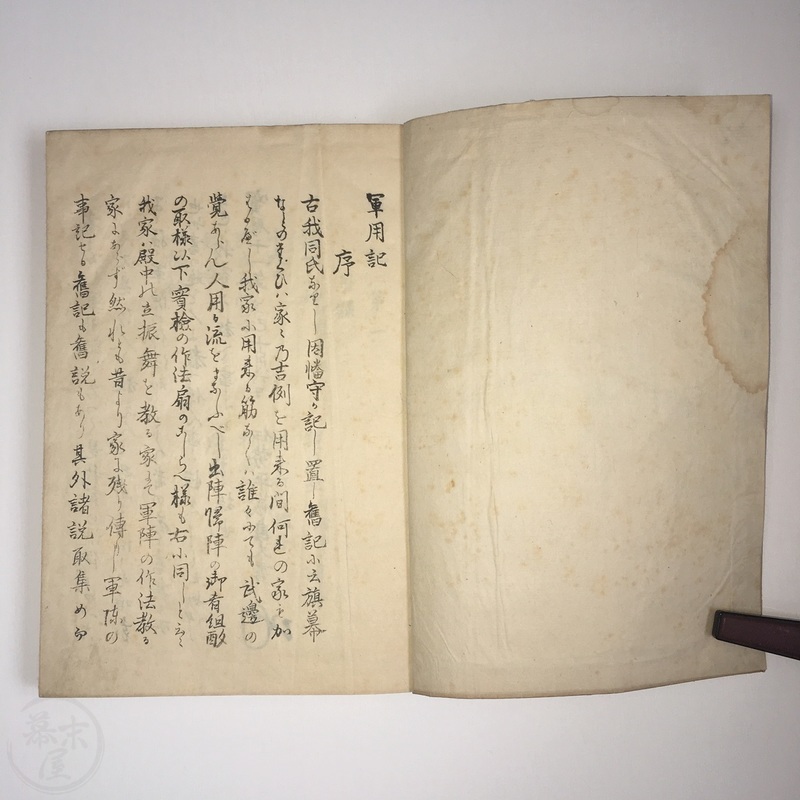 軍用記
序
古我同氏なりし因幡守が記し置し舊記に云旗幕
なとの ハ家々乃吉例を用来る間何れの家にも
我家に用来る筋なくハ誰々にても武邊の
覺あらん人用る流をまなふべし出陣帰陣の御肴組酌
の取様以下實檢の作法扇のこしらへ様も右に同しと云々
我家ハ殿中の立振舞を教る家にて軍陣の作法教る
家にあらず然れとも昔より家に残り傳りし軍陣の
事記せる舊記も舊説もあり其外諸説取集め
幕末屋